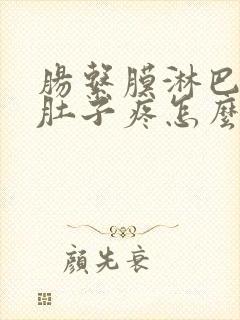 腸繫膜淋巴
肚子疼怎麼
顔先衰